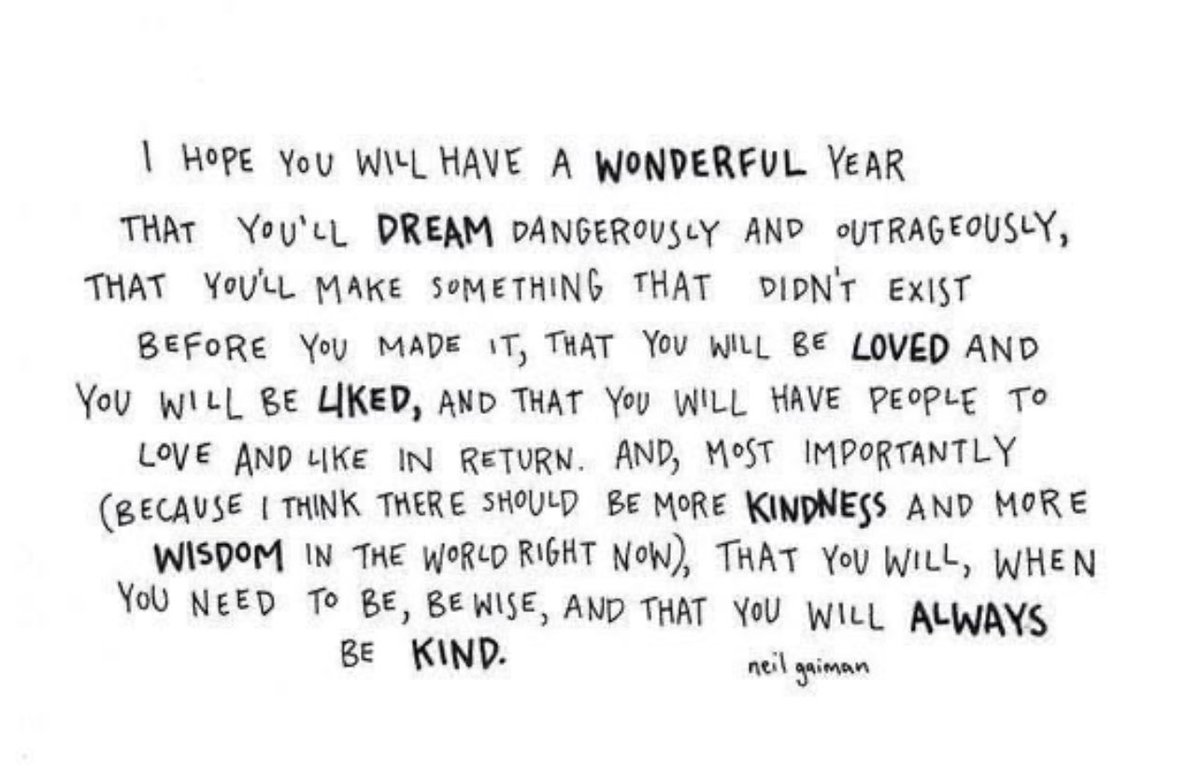 I HOPE YOU WILL HAVE A WONDERFUL YEAR
THAT YOU'LL DREAM DANGEROUSLY AND OUTRAGEOUSLY,
THAT YOU'LL MAKE SOMETHING THAT DIDN'T EXIST
BEFORE YOU MADE IT, THAT YOU WILL BE LOVED AND
YOU WILL BE LIKED, AND THAT YOU WILL HAVE PEOPLE TO
LOVE AND LIKE IN RETURN. AND, MOST IMPORTANTLY
(BECAUSE I THINK THERE SHOULD BE MORE KINDNESS AND MORE
WISDOM IN THE WORLD RIGHT NOW), THAT YOU WILL, WHEN
YOU NEED TO BE, BE WISE, AND THAT YOU WILL ALWAYS
BE KIND.
neil gaiman